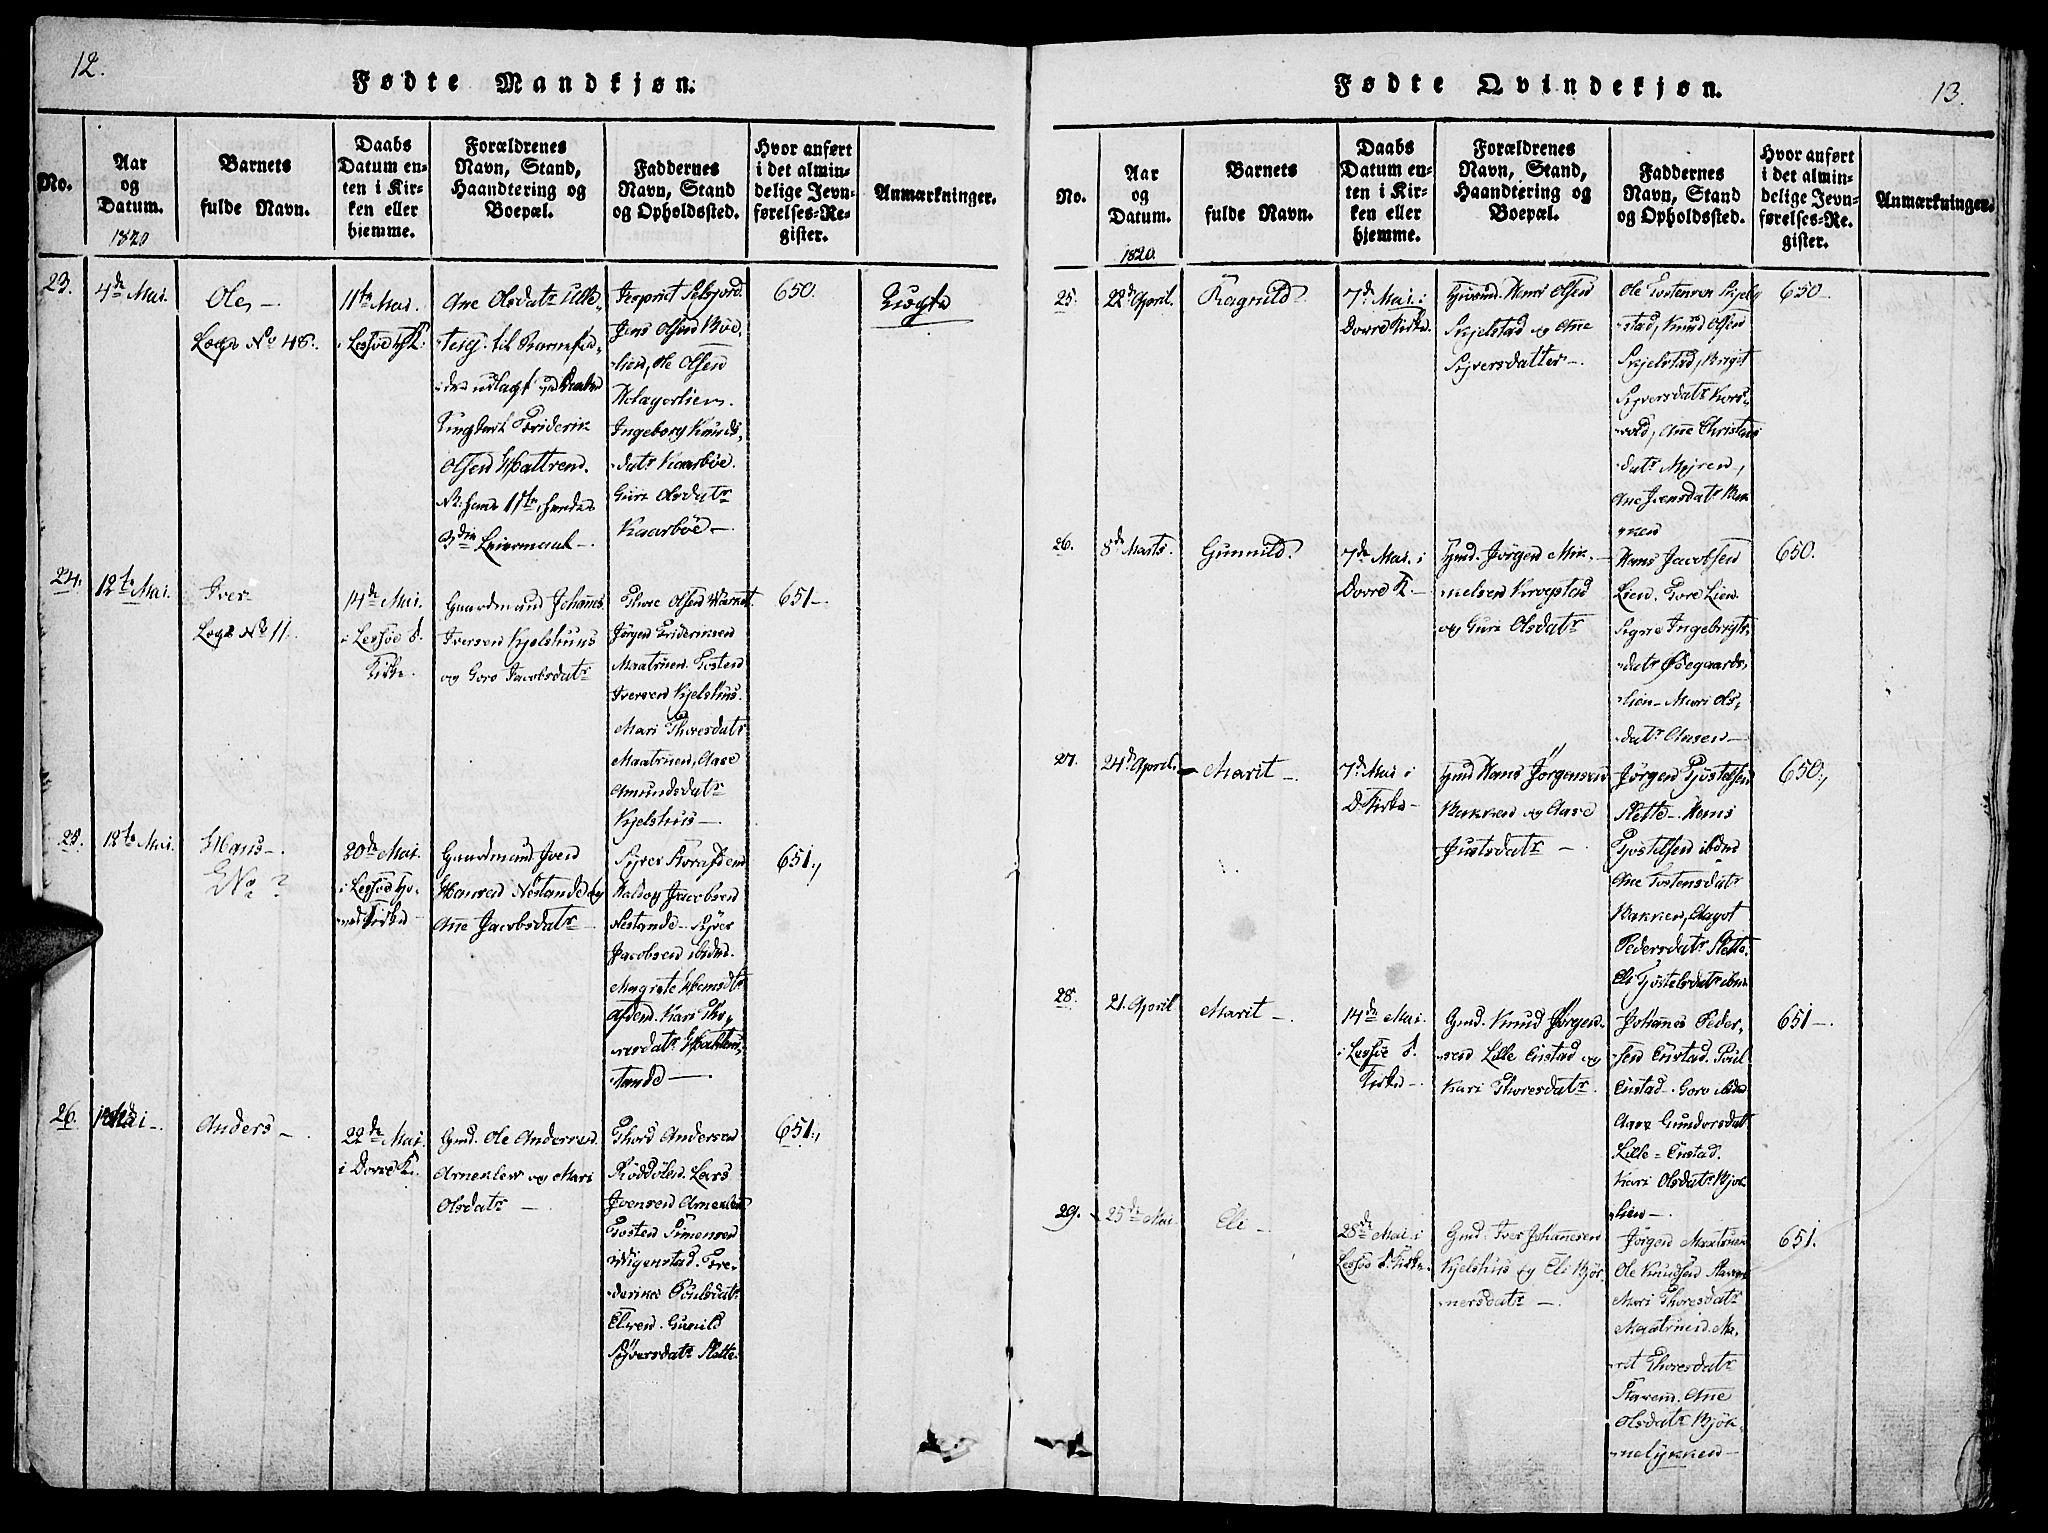 12.
Fødte Mandkjøn.
No.
Aar
og
Datum.
1820
Barnets
fulde Navn.
Daabs
Datum en-
ten i Kir-
ken eller
hjemme.
Forældrenes
Navn, Stand,
Haandtering og
Boepæl.
Faddernes
Navn, Stand
og Opholdssted.
Hvor anført
i det almin-
delige Jevn-
førelses-Re-
gister.
Anmærkninger.
23.
4de Mai.
Ole, —
No 48.
11te Mai.
i Lessøe HK.
Ane Olsdatr Lille-
til Barnefa-
der udlagt
Friderik
Olsen Hattrem.
NB. hans 1ste, hendes
3die Leiermaal —.
Selsjord.
Jens Olsen Bøe-
lien, Ole Olsen
Ingeborg Knuds-
datr Kaarbøe.
Guri Olsdatr
Kaarbøe —
650.
Uægte
24.
12te Mai.
Iver
No 11.
14de Mai.
i Lessøe S.
Kirke.
Gaardmand Johannes
Iversen Kjelshuus
og Goro Jacobsdatr
Thore Olsen
Jørgen Friderichsen
Maatruen. Tosten
Iversen Kjelshus.
Mari Thoresdatr
Maatruen, Aase
Amundsdatr
Kjelshuus —.
651 —.
25.
12te Mai.
Hans —.
No ?
20de Mai.
i Lessøe Ho-
vedKirke —
Gaardmand Iver
Hansen Nestande og
Ane Jacobsdatr —
Syver
Jacobsen
Nestande — Syver
Jacobsen ibidm.
Magrete
Kari Tho-
resdatr
stande —.
651.,
26.
Mai —.
Anders —.
22de Mai.
i Dovre K.
Gmd. Ole Andersen
Arneklev og Mari
Olsdatr —
Thord Andersen
Lars
Ivensen Arneklev
Tosten Simensen
Wigenstad. Fre-
derikes Poulsdatr
Gunild
Syversdatr Slette.
651.,
13.
Fødte Qvindekjøn.
No.
Aar
og
Datum.
1820.
Barnets
fulde Navn.
Daabs
Datum en-
ten i Kir-
ken eller
hjemme.
Forældrenes
Navn, Stand,
Haandtering og
Boepæl.
Faddernes
Navn, Stand
og Opholdssted.
Hvor anført
i det almin-
delige Jevn-
førelses-Re-
gister.
Anmærkninger.
25.
22de April.
Ragnild.
7de Mai. i
Dovre Kirke.
Hans Olsen
Skjelstad og Ane
Syversdatter —.
Ole Tostensen Skjel-
stad, Knud Olsen
Skjelstad, Brigt
Syversdatr Kors-
vold, Ane Christens
datr Myren —,
Ane Ivensdatr Bak
ken
650 —
26.
8de Marts.
Gunnild.
7de Mai. i
Dovre K. —
Gmd. Jørgen Mik-
kelsen Krogstad
og Guri Olsdatr
Hans Jacobsen
Lien. Tore Lien.
Signe Ingebrigts-
datr Ødegaards-
lien — Mari Ols-
datr Aasen —
650.
27.
24de April.
Marit —.
7de Mai i
D Kirke —
Gmd Hans Jørgensen
Bakken og Aase
Justsdatr —
Jørgen Tjøstelsen
Slette — Hans
Tjøstelsen ibdm
Ane Tostensdatr
Bakken, Aagot
Pedersdatr Slette.
Eli Tjøstelsdatr ibdm
650.,
28.
21. April
Marit —.
14de Mai.
i Lessøe S.
Kirke —.
Gmd. Knud Jørgen-
sen Lille Enstad og
Kari Thoresdatr.
Johannes Peder-
sen Enstad. Poul
Enstad. Goro ibdm
Aase Gundersdatr
Lille-Enstad.
Kari Olsdatr Bjok
lien —.
651 —.
29.
25de Mai
Eli —
28de Mai. i
Lessøe S. Kirke.
Gmd. Iver Johannesen
Kjelshuus og Eli Bjør
nersdatr —.
Jørgen Maatruen
Ole Knudsen Stavem
Mari Thoresdatr
Maatruen. Ma-
rit Thoresdatr
Stavem. Ane
Olsdatr Bjøk-
nelykken —
651.